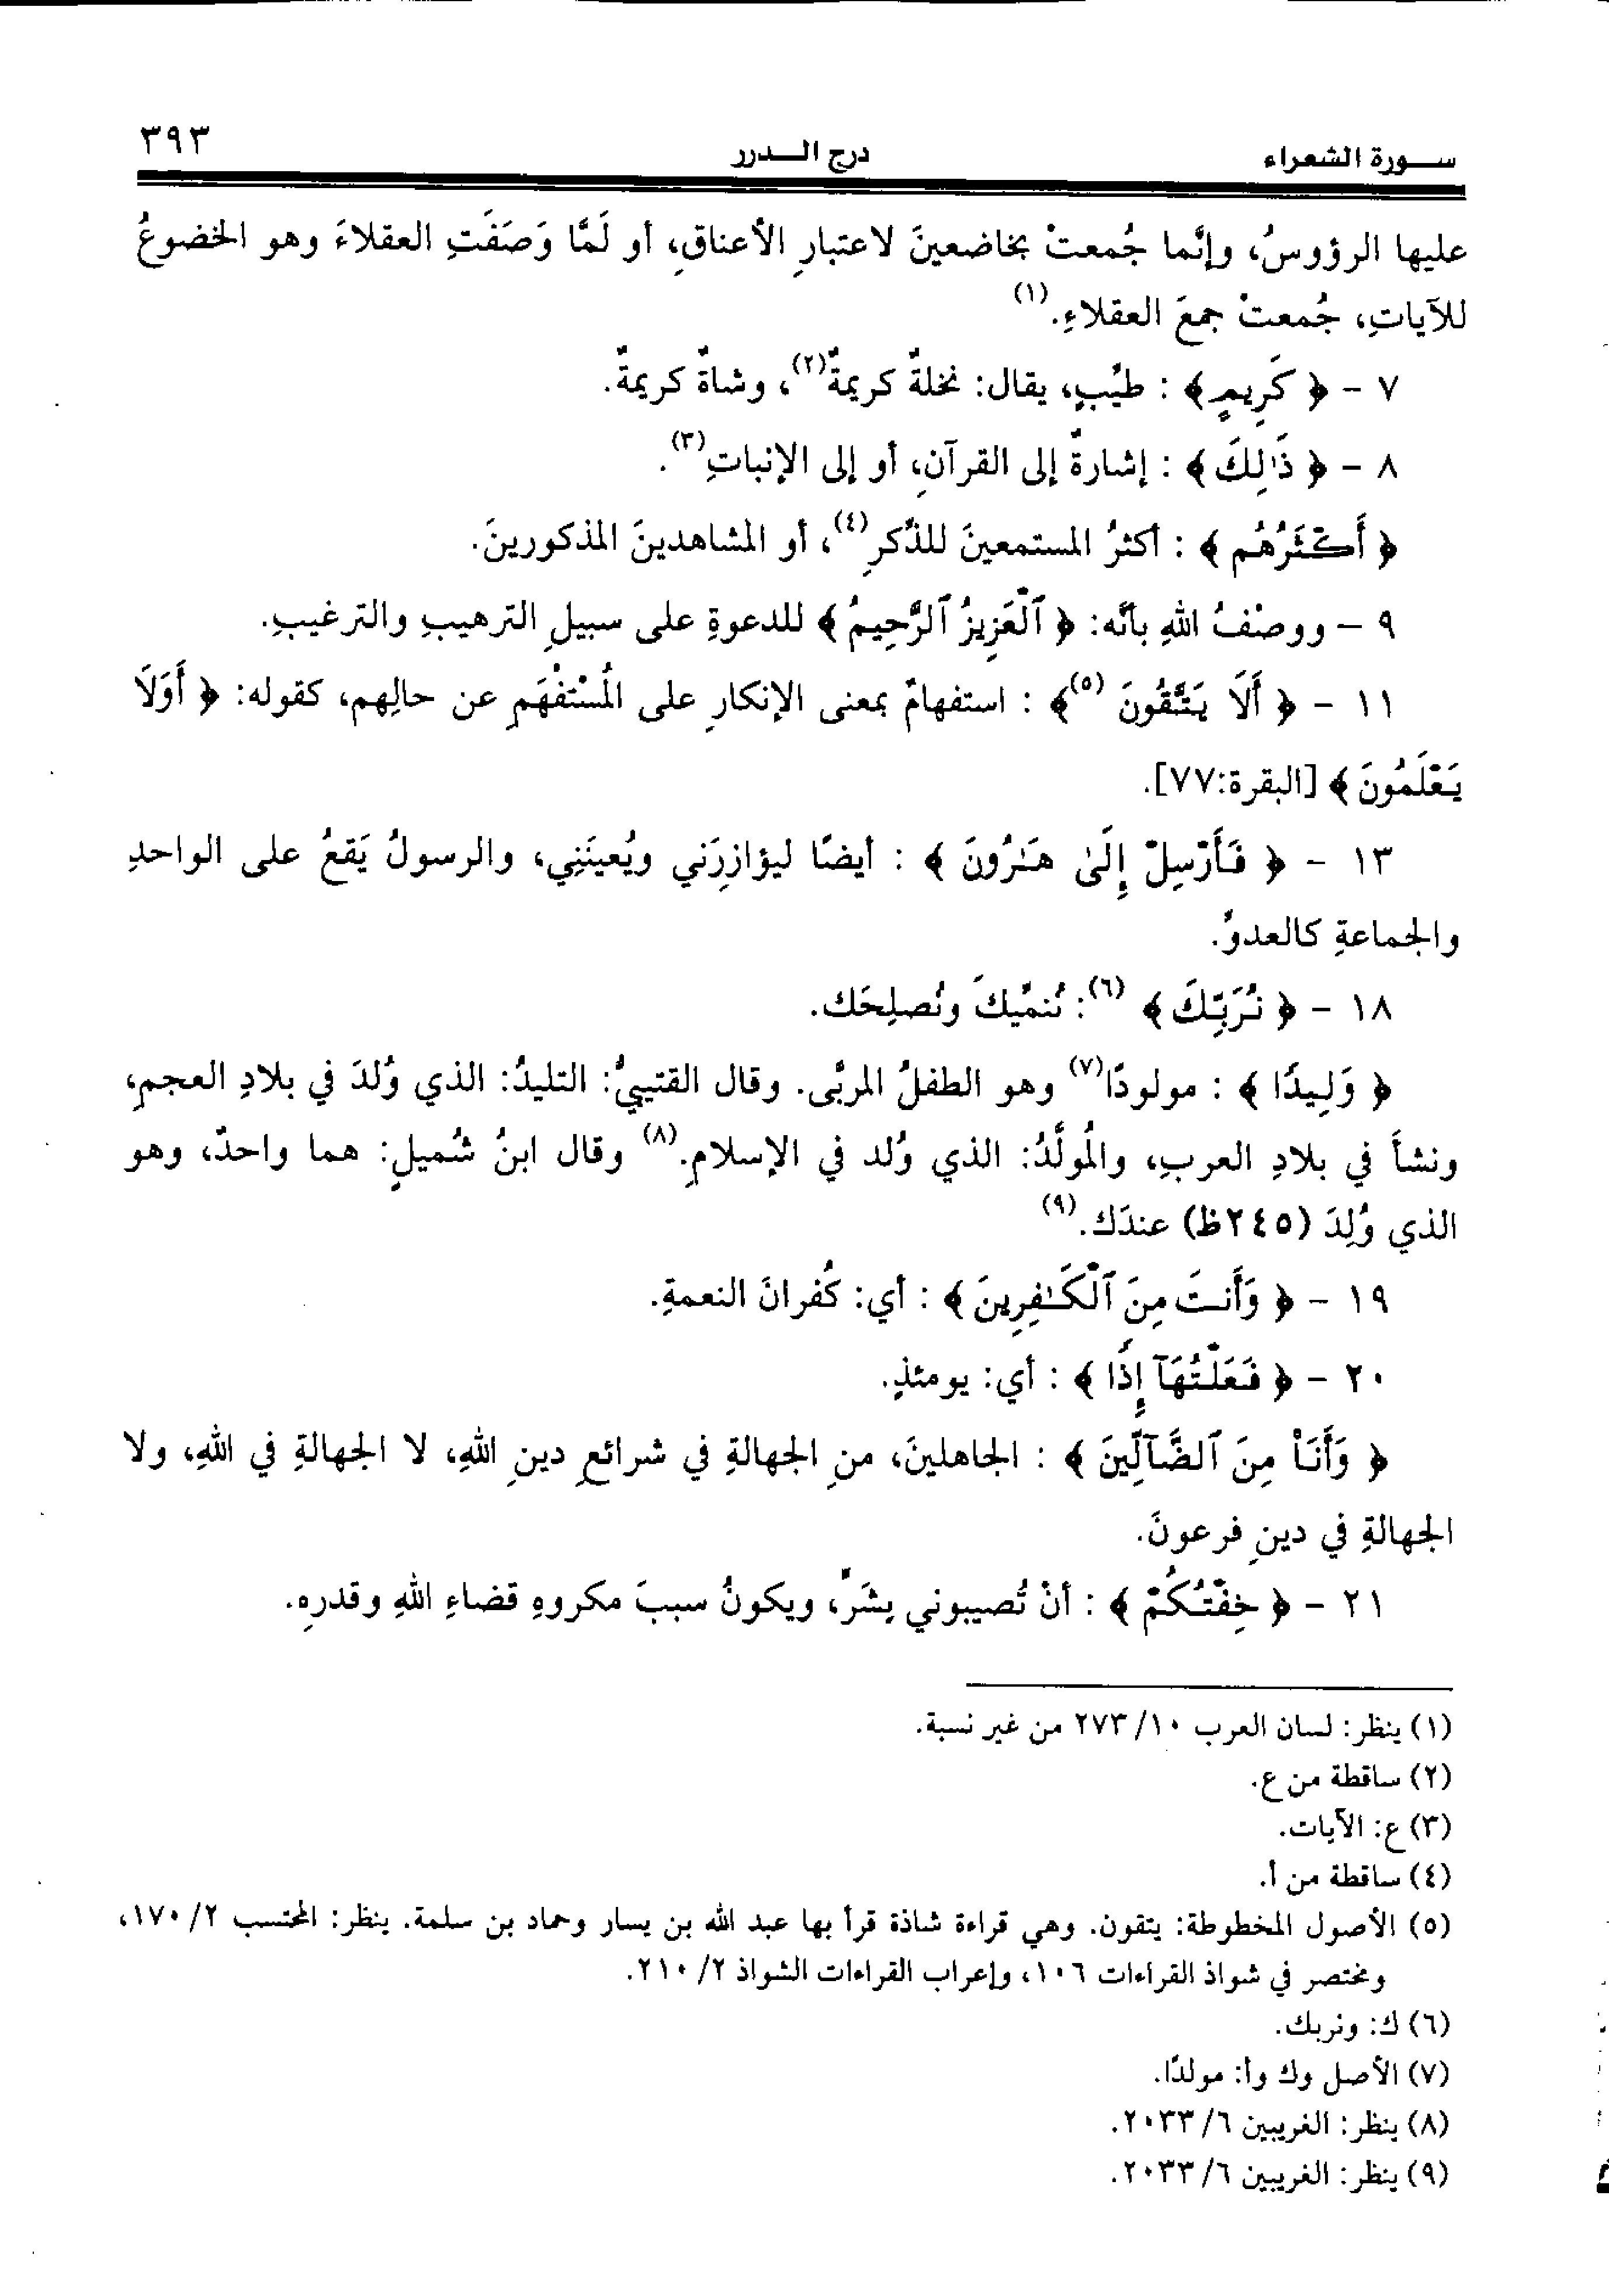 سورة الشعراء درج الدرر ٣٩٣
عليها الرؤوسُ، وإنَّما جُمعتْ بخاضعينَ لاعتبارِ الأعناقِ، أو لَمَّا وَصَفَتِ العقلاءَ وهو الخضوعُ
للآياتِ، جُمعتْ جمعَ العقلاءِ.(١)
٧ - ﴿ كَرِيمٍ﴾ : طيِّبٍ، يقال: نخلةٌ كريمةٌ(٢)، وشاةٌ كريمةٌ.
٨ - ﴿ ذَٰلِكَ ﴾ : إشارةٌ إلى القرآنِ، أو إلى الإنباتِ(٣).
﴿ أَكْثَرُهُم ﴾ : أكثرُ المستمعينَ للذِّكرِ(٤)، أو المشاهدينَ المذكورينَ.
٩ - ووصْفُ اللهِ بأنَّه: ﴿ ٱلْعَزِيزُ ٱلرَّحِيمُ ﴾ للدعوةِ على سبيلِ الترهيبِ والترغيبِ.
١١ - ﴿ أَلَا يَتَّقُونَ (٥)﴾ : استفهامٌ بمعنى الإنكارِ على المُسْتفْهَمِ عن حالِهم، كقوله: ﴿ أَوَلَا
يَعْلَمُونَ ﴾ [البقرة:٧٧].
١٣ - ﴿ فَأَرْسِلْ إِلَىٰ هَـٰرُونَ ﴾ : أيضًا ليؤازرَني ويُعينَنِي، والرسولُ يَقعُ على الواحدِ
والجماعةِ كالعدوِّ.
١٨ - ﴿ نُرَبِّكَ ﴾ (٦): نُنمِّيكَ ونُصلِحَك.
﴿ وَلِيدًا ﴾ : مولودًا(٧) وهو الطفلُ المربَّى. وقال القتيبيُّ: التليدُ: الذي وُلدَ في بلادِ العجمِ،
ونشأَ في بلادِ العربِ، والمُولَّدُ: الذي وُلد في الإسلامِ.(٨) وقال ابنُ شُميلٍ: هما واحدٌ، وهو
الذي وُلِدَ (٢٤٥ظ) عندَك.(٩)
١٩ - ﴿ وَأَنتَ مِنَ ٱلْكَـٰفِرِينَ ﴾ : أي: كُفرانَ النعمةِ.
٢٠ - ﴿ فَعَلْتُهَآ إِذًا ﴾ : أي: يومئذٍ.
﴿ وَأَنَا۠ مِنَ ٱلضَّآلِّينَ ﴾ : الجاهلينَ، منِ الجهالةِ في شرائعِ دينِ اللهِ، لا الجهالةِ في اللهِ، ولا
الجهالةِ في دينِ فرعونَ.
٢١ - ﴿ خِفْتُكُمْ ﴾ : أنْ تُصيبوني بشَرٍّ، ويكونُ سببَ مكروهِ قضاءِ اللهِ وقدرِه.
(١) ينظر: لسان العرب ١٠/ ٢٧٣ من غير نسبة.
(٢) ساقطة من ع.
(٣) ع: الآيات.
(٤) ساقطة من أ.
(٥) الأصول المخطوطة: يتقون. وهي قراءة شاذة قرأ بها عبد الله بن يسار وحماد بن سلمة. ينظر: المحتسب ٢/ ١٧٠،
ومختصر في شواذ القراءات ١٠٦، وإعراب القراءات الشواذ ٢/ ٢١٠.
(٦) ك: ونربك.
(٧) الأصل وك وأ: مولدًا.
(٨) ينظر: الغريبين ٦/ ٢٠٣٣.
(٩) ينظر: الغريبين ٦/ ٢٠٣٣.